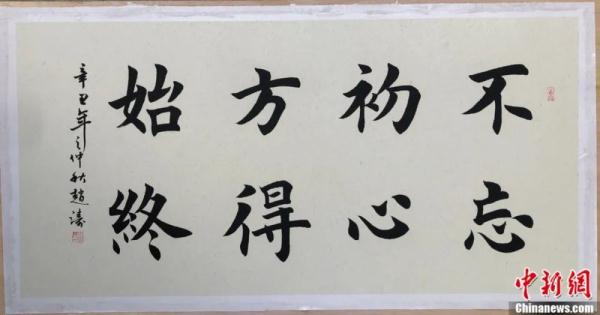 不忘
初心
方得
始終
辛丑年之仲秋趙濤
中新網
Chinanews.com